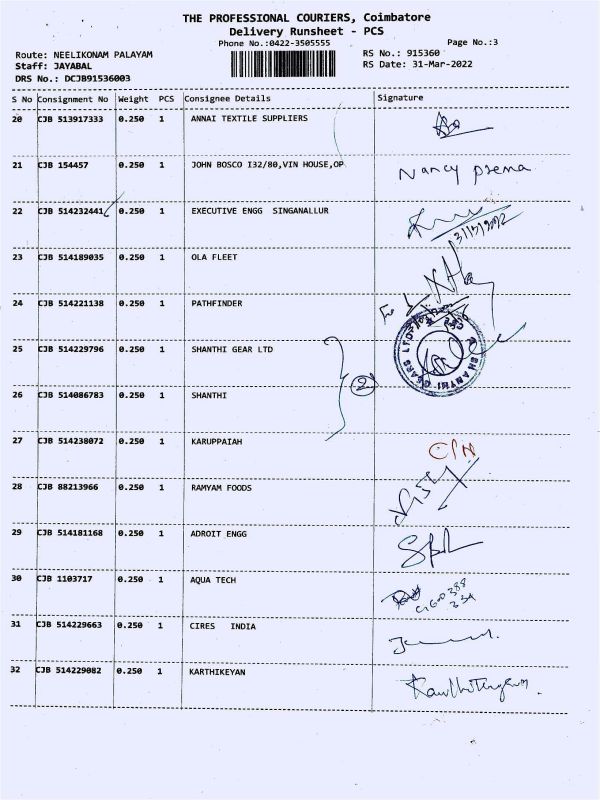 THE PROFESSIONAL COURIERS, Coimbatore
Delivery Runsheet - PCS
Phone No.:0422-3505555
Page No.:3
Route: NEELIKONAM PALAYAM
RS No.: 915360
Staff: JAYABAL
RS Date: 31-Mar-2022
DRS No.: DCJB91536003
S No Consignment No Weight PCS Consignee Details Signature
20 CJB 513917333 0.250 1 ANNAI TEXTILE SUPPLIERS
21 CJB 154457 0.250 1 JOHN BOSCO I32/80,VIN HOUSE,OP Nancy prema
22 CJB 514232441 0.250 1 EXECUTIVE ENGG SINGANALLUR
23 CJB 514189035 0.250 1 OLA FLEET
24 CJB 514221138 0.250 1 PATHFINDER
25 CJB 514229796 0.250 1 SHANTHI GEAR LTD
SHANTHI GEARS LTD
2
26 CJB 514086783 0.250 1 SHANTHI
27 CJB 514238072 0.250 1 KARUPPAIAH
28 CJB 88213966 0.250 1 RAMYAM FOODS
29 CJB 514181168 0.250 1 ADROIT ENGG
30 CJB 1103717 0.250 1 AQUA TECH
31 CJB 514229663 0.250 1 CIRES INDIA
32 CJB 514229082 0.250 1 KARTHIKEYAN